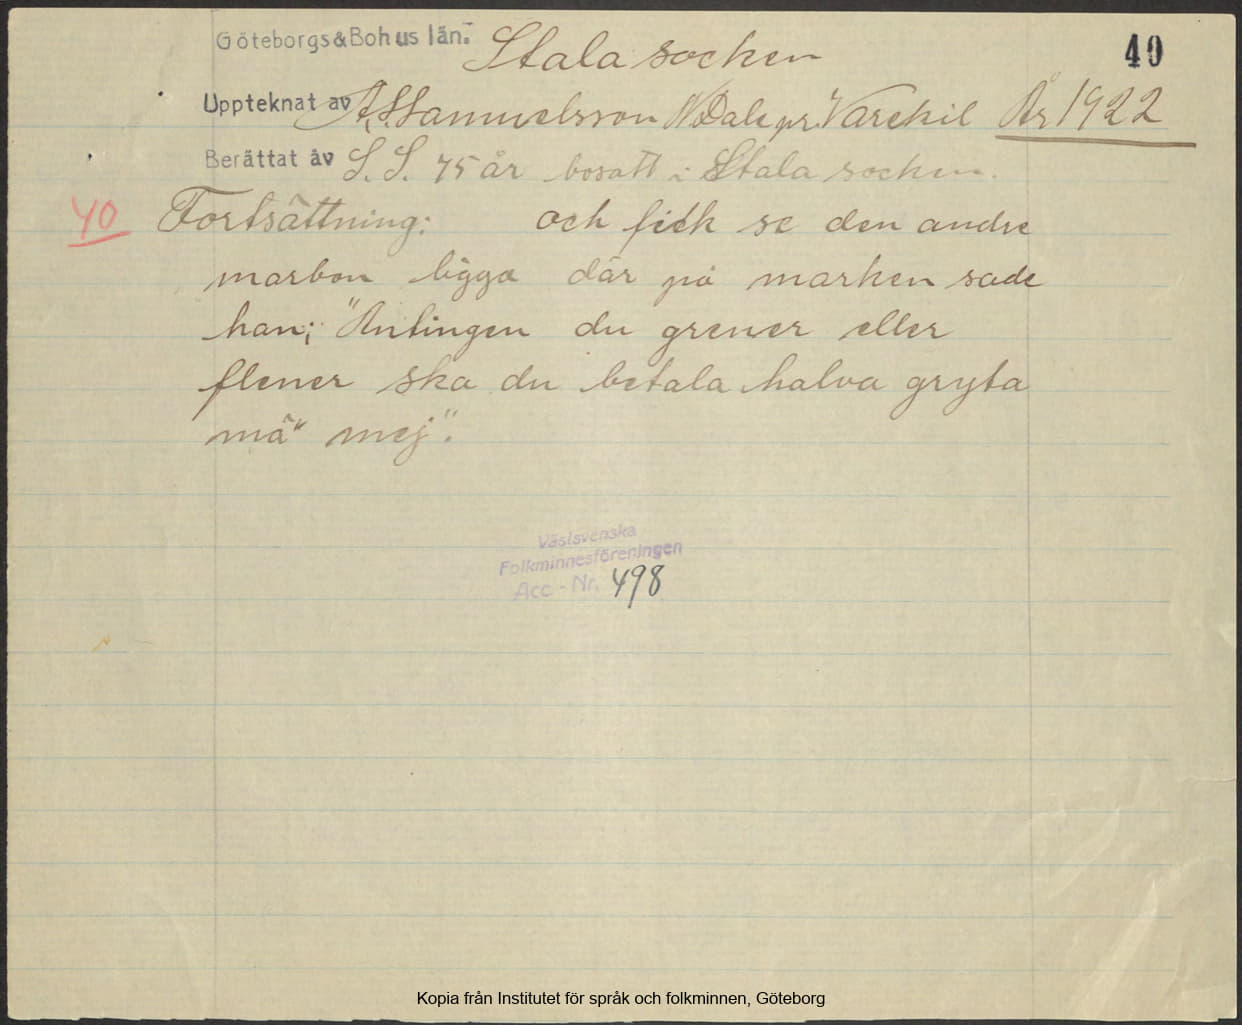 Göteborgs & Bohus län. Stala socken
40
Uppteknat av A. S. Samuelsson N. Dale pr. Varekil År 1922
Berättat av S. S. 75 år bosatt i Stala socken.
40 Fortsättning: och fick se den andre
marbon ligga där på marken sade
han; "Antingen du grener eller
flener ska du betala halva gryta
mä" mej".
Västsvenska
Folkminnesföreningen
Acc - Nr. 498
Kopia från Institutet för språk och folkminnen, Göteborg